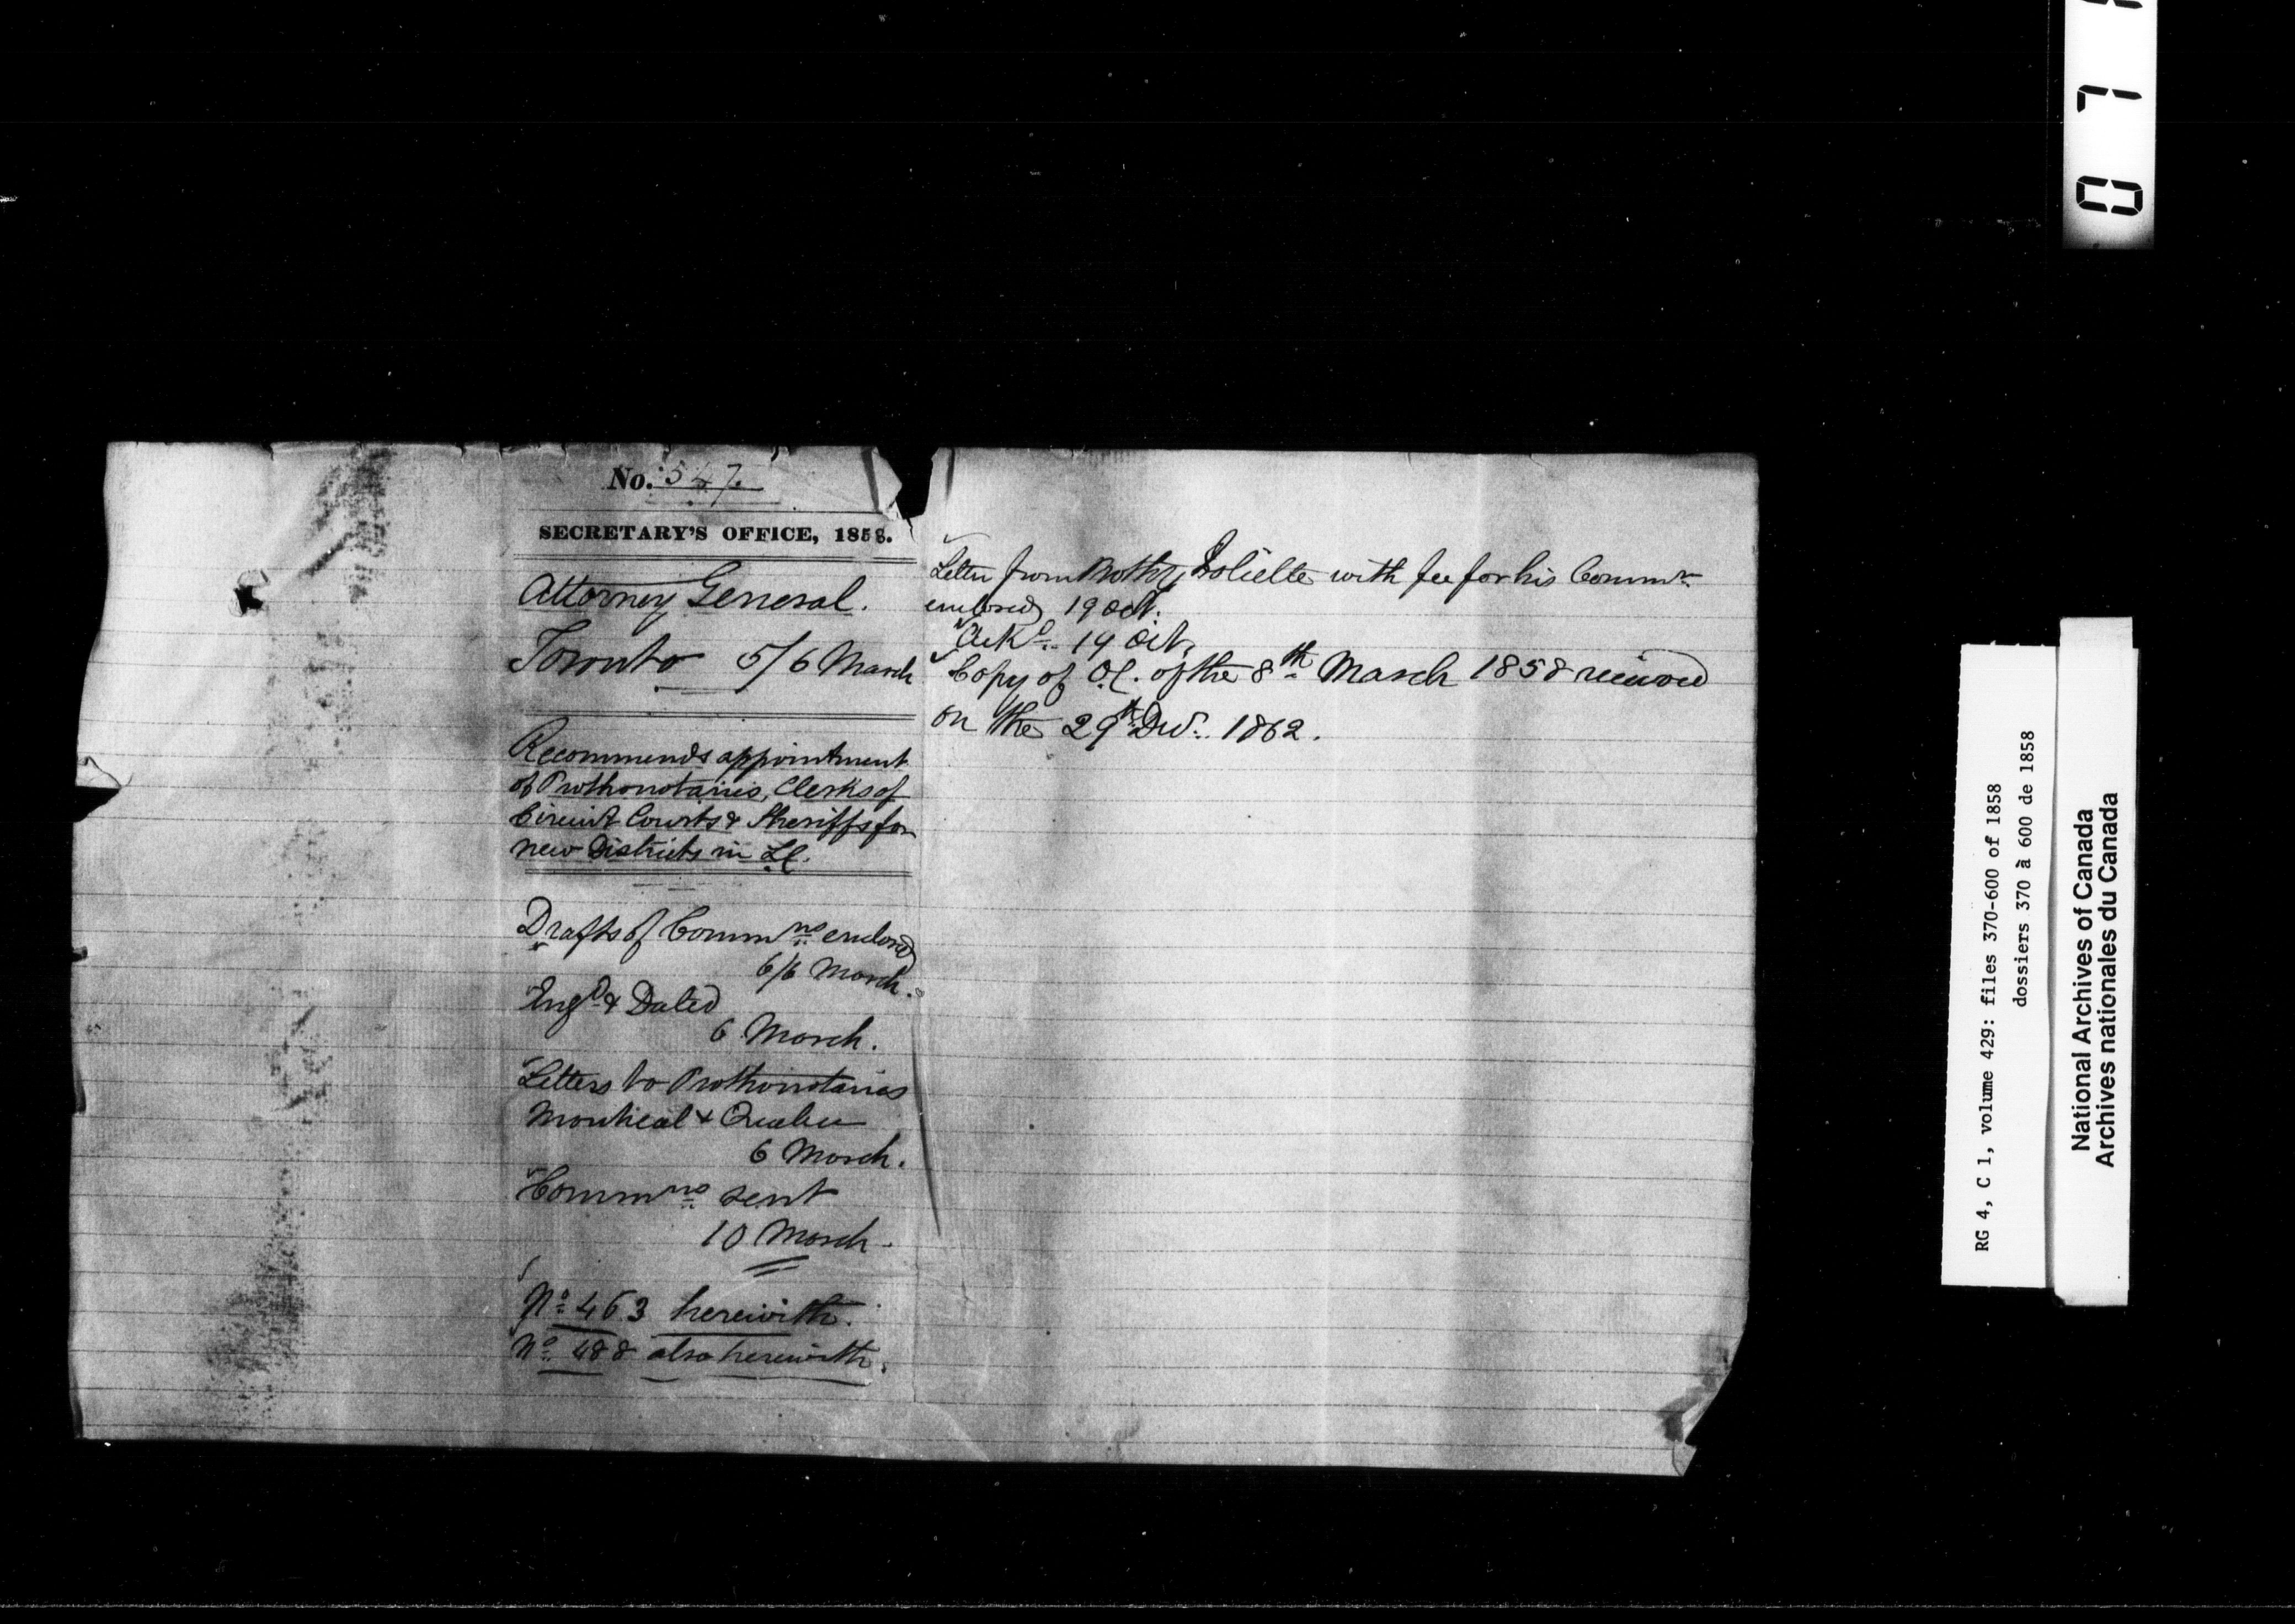 No. 547.
SECRETARY'S OFFICE, 1858.
Attorney General.
Toronto 5/6 March
Recommends appointment
of Prothonotaries, Clerks of
Circuit Courts & Sheriffs for
new Districts in L.C.
Drafts of Commns enclosed
6/6 March.
Engd & Dated
6 March.
Letters to Prothonotaries
Montreal & Quebec
6 March.
Commns sent
10 March.
No 463 herewith.
No 488 also herewith.
Letter from Prothy Joliette with fee for his Commn
enclosed 19 Oct.
Ackd 19 Oct.
Copy of O.C. of the 8th March 1858 received
on the 29th Decr. 1862.
RG 4, C 1, volume 429: files 370-600 of 1858
dossiers 370 à 600 de 1858
National Archives of Canada
Archives nationales du Canada
0 7